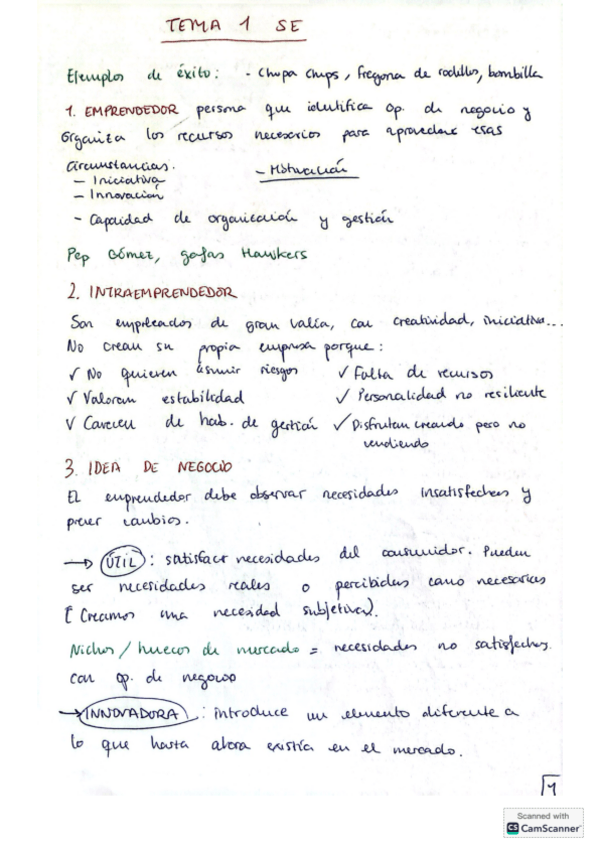 TEMA 1 SE
Ejemplos de éxito: - Chupa chups, fregona de rodillos, bombilla
1. EMPRENDEDOR persona que identifica op. de negocio y
organiza los recursos necesarios para aprovechar esas
circunstancias. - Motivación
- Iniciativa
- Innovación
- Capacidad de organización y gestión
Pep Gómez, gafas Hawkers
2. INTRAEMPRENDEDOR
Son empleados de gran valía, con creatividad, iniciativa...
No crean su propia empresa porque:
✓ No quieren asumir riesgos ✓ Falta de recursos
✓ Valoran estabilidad ✓ Personalidad no resiliente
✓ Carecen de hab. de gestión ✓ Disfrutan creando pero no
vendiendo
3. IDEA DE NEGOCIO
El emprendedor debe observar necesidades insatisfechas y
prever cambios.
→ ÚTIL: satisfacer necesidades del consumidor. Pueden
ser necesidades reales o percibidas como necesarias
(Creamos una necesidad subjetiva).
Nichos / huecos de mercado = necesidades no satisfechas
con op. de negocio
→ INNOVADORA: introduce un elemento diferente a
lo que hasta ahora existía en el mercado.
1
Scanned with
CS CamScanner